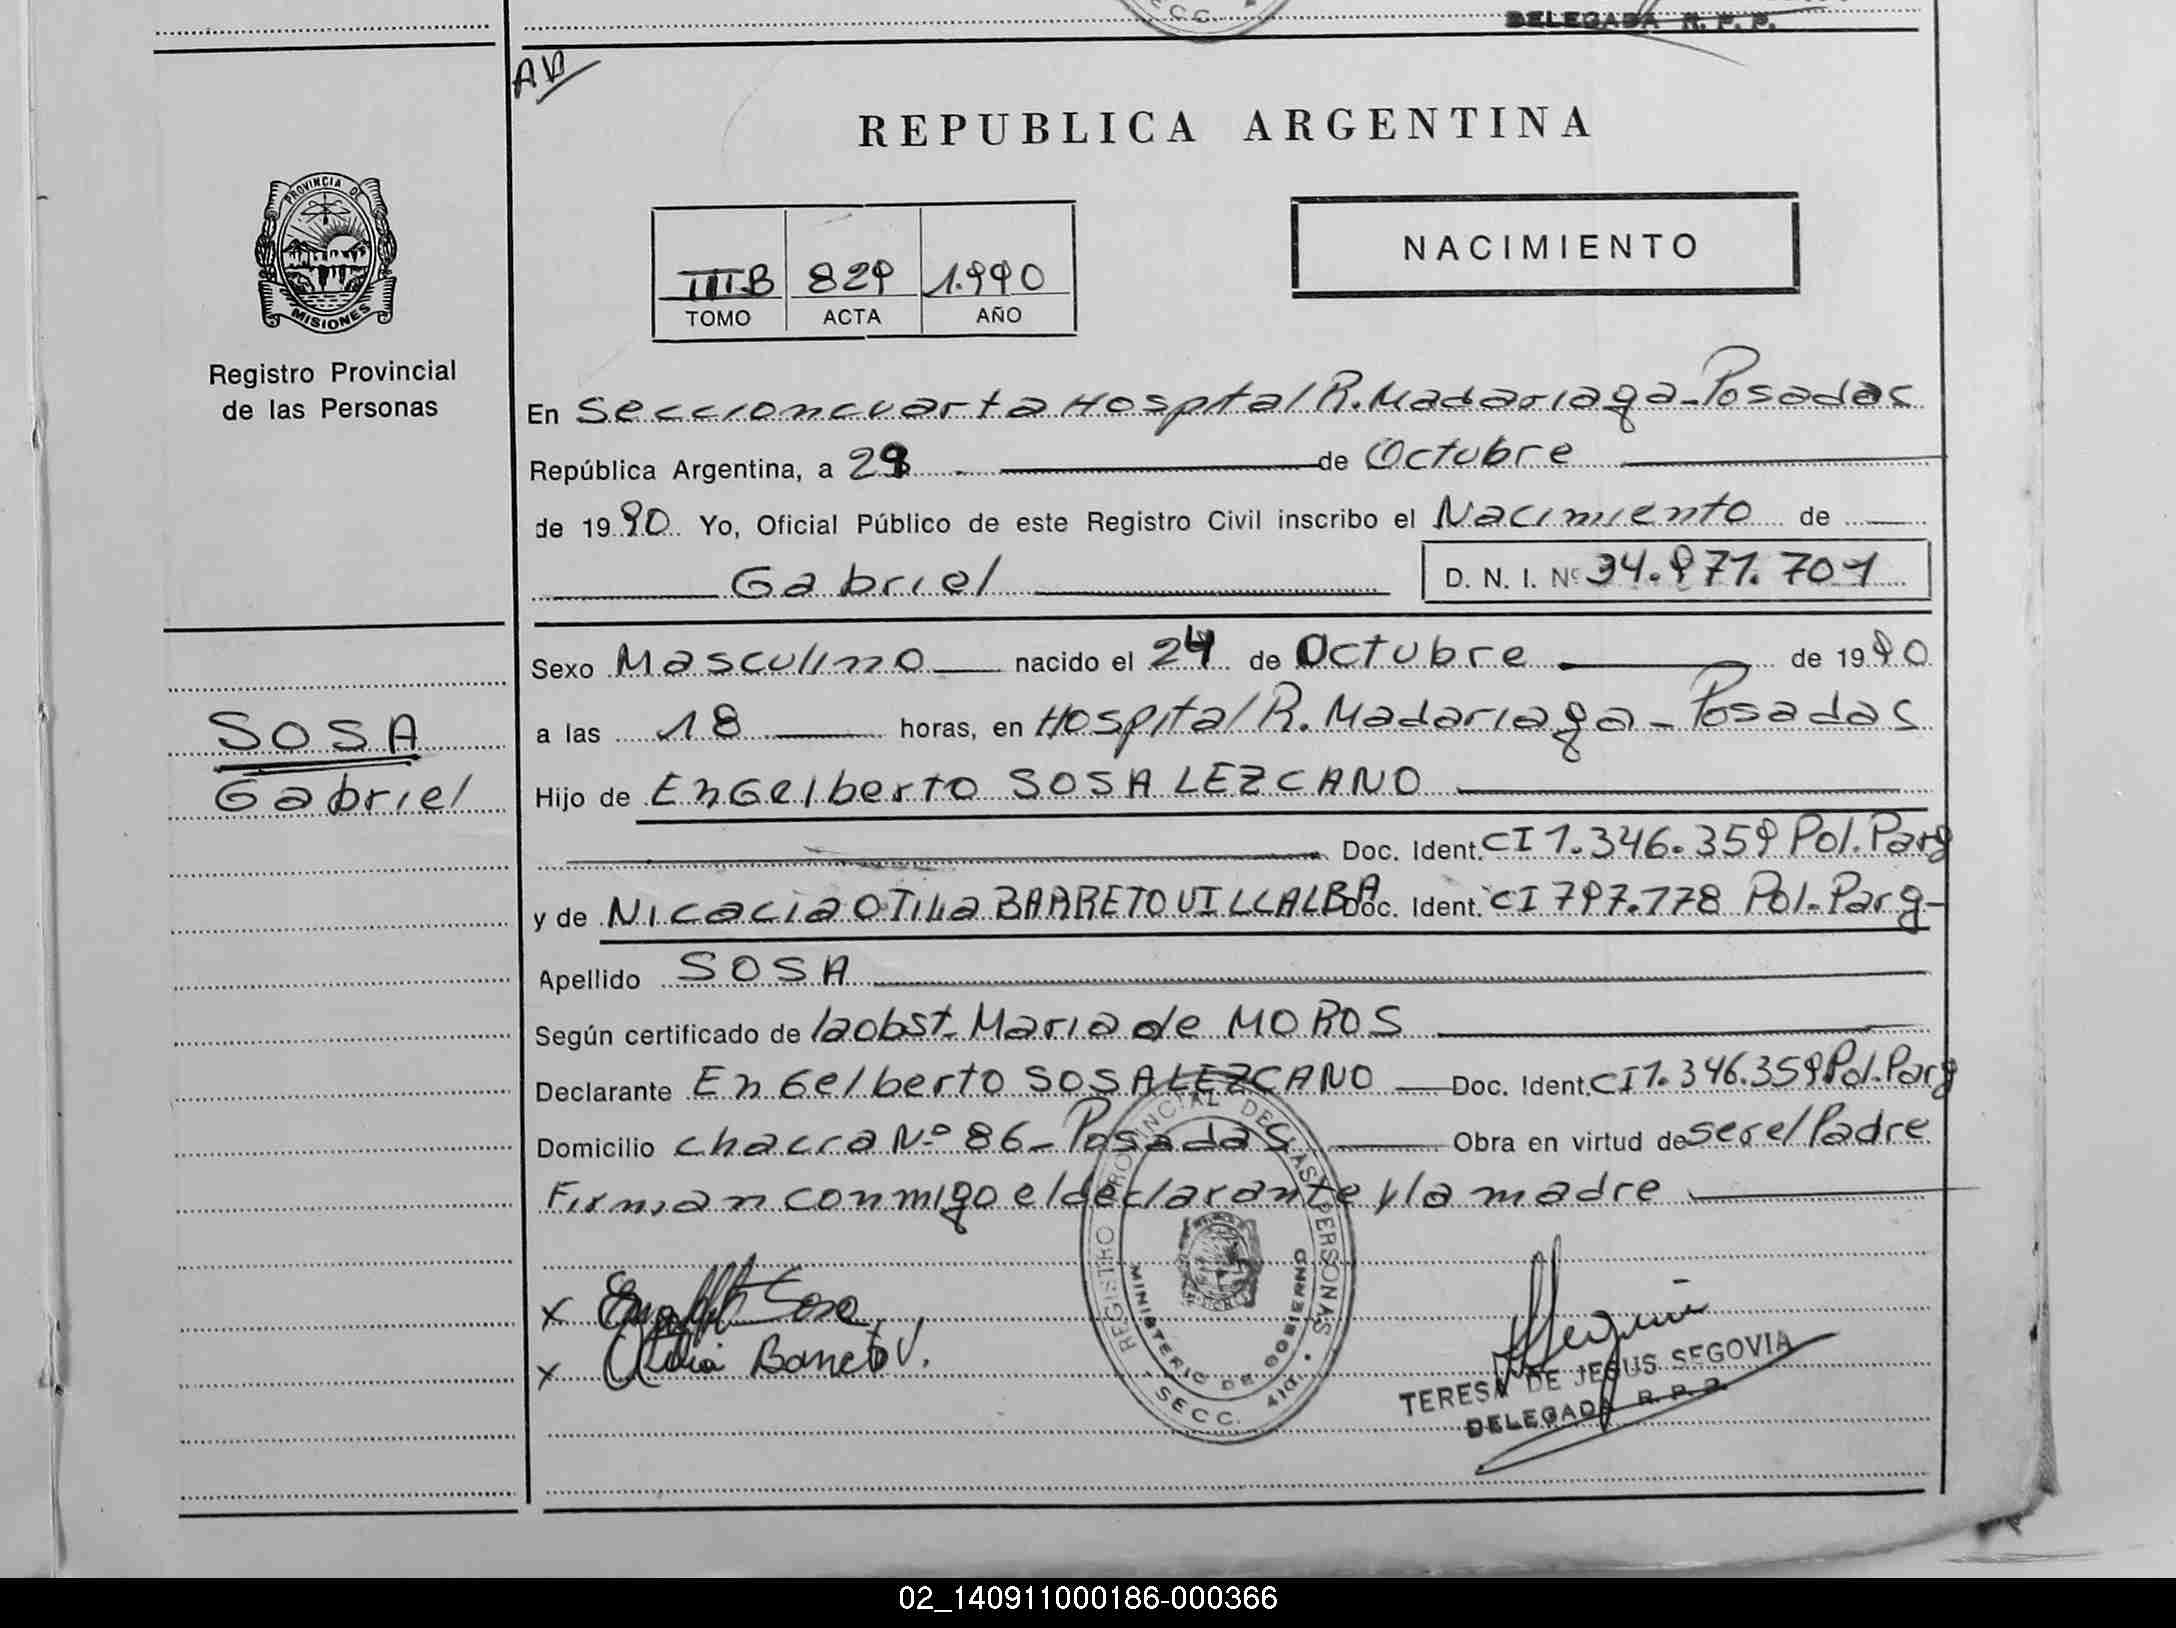 SECC.
DELEGADA R. P. P.
AD
REPUBLICA ARGENTINA
PROVINCIA DE
MISIONES
Registro Provincial
de las Personas
III.B 829 1.990
TOMO ACTA AÑO
NACIMIENTO
En Seccion cuarta Hospital R. Madariaga - Posadas
República Argentina, a 29 de Octubre
de 1990 Yo, Oficial Público de este Registro Civil inscribo el Nacimiento de
Gabriel D. N. I. Nº 34.971.701
Sexo Masculino nacido el 24 de Octubre de 1990
a las 18 horas, en Hospital R. Madariaga - Posadas
SOSA
Gabriel
Hijo de Engelberto SOSA LEZCANO
Doc. Ident. CI 1.346.359 Pol. Parg
y de Nicacia Otilia BARRETO VILLALBA Doc. Ident. CI 797.778 Pol. Parg-
Apellido SOSA
Según certificado de la obst. Maria de MOROS
Declarante Engelberto SOSA LEZCANO Doc. Ident. CI 1.346.359 Pol. Parg
Domicilio chacra Nº 86 - Posadas Obra en virtud de ser el Padre
Firman conmigo el declarante y la madre
REGISTRO PROVINCIAL DE LAS PERSONAS
MINISTERIO DE GOBIERNO
SECC. 4ta.
x Sosa
x Otilia Barreto V.
TERESA DE JESUS SEGOVIA
DELEGADA R. P. P.
02_140911000186-000366